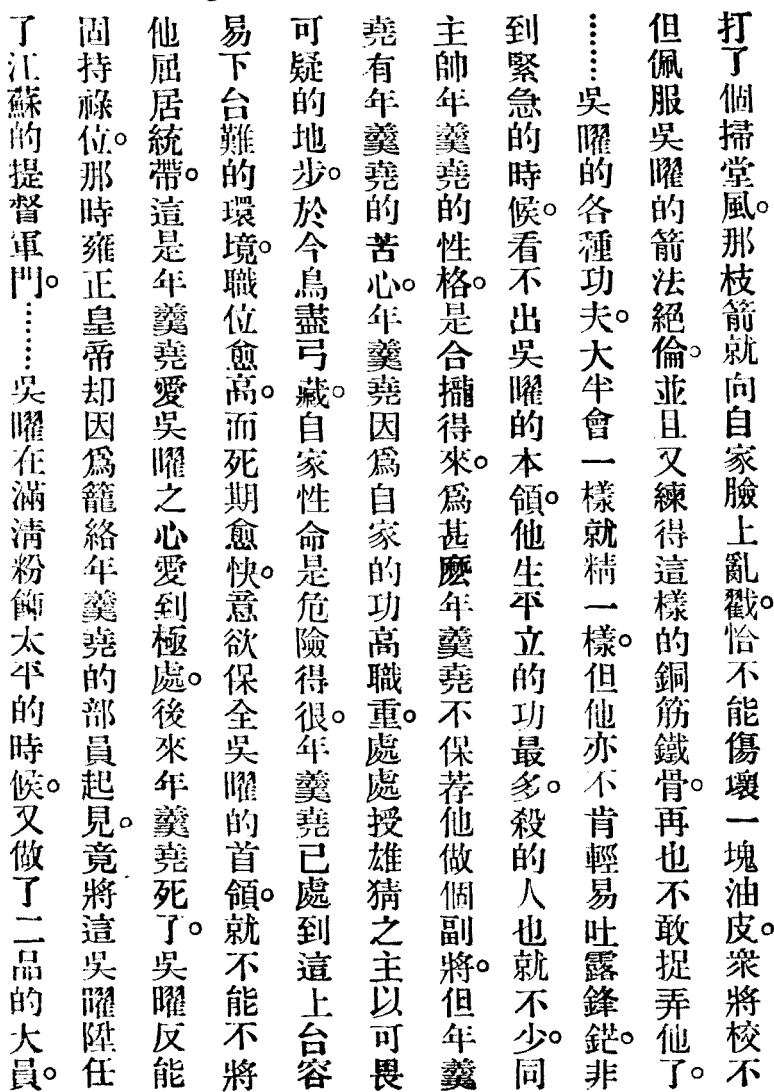 打了個掃堂風。那枝箭就向自家臉上亂戳。恰不能傷壞一塊油皮。衆將校不
但佩服吳曜的箭法絕倫。並且又練得這樣的銅筋鐵骨。再也不敢捉弄他了。
……吳曜的各種功夫。大半會一樣就精一樣。但他亦不肯輕易吐露鋒鋩。非
到緊急的時候。看不出吳曜的本領。他生平立的功最多。殺的人也就不少。同
主帥年羹堯的性格。是合攏得來。爲甚麽年羹堯不保荐他做個副將。但年羹
堯有年羹堯的苦心。年羹堯因爲自家的功高職重。處處授雄猜之主以可畏
可疑的地步。於今鳥盡弓藏。自家性命是危險得很。年羹堯已處到這上台容
易下台難的環境。職位愈高。而死期愈快。意欲保全吳曜的首領。就不能不將
他屈居統帶。這是年羹堯愛吳曜之心愛到極處。後來年羹堯死了。吳曜反能
固持祿位。那時雍正皇帝却因爲籠絡年羹堯的部員起見。竟將這吳曜陞任
了江蘇的提督軍門。……吳曜在滿淸粉飾太平的時候。又做了二品的大員。